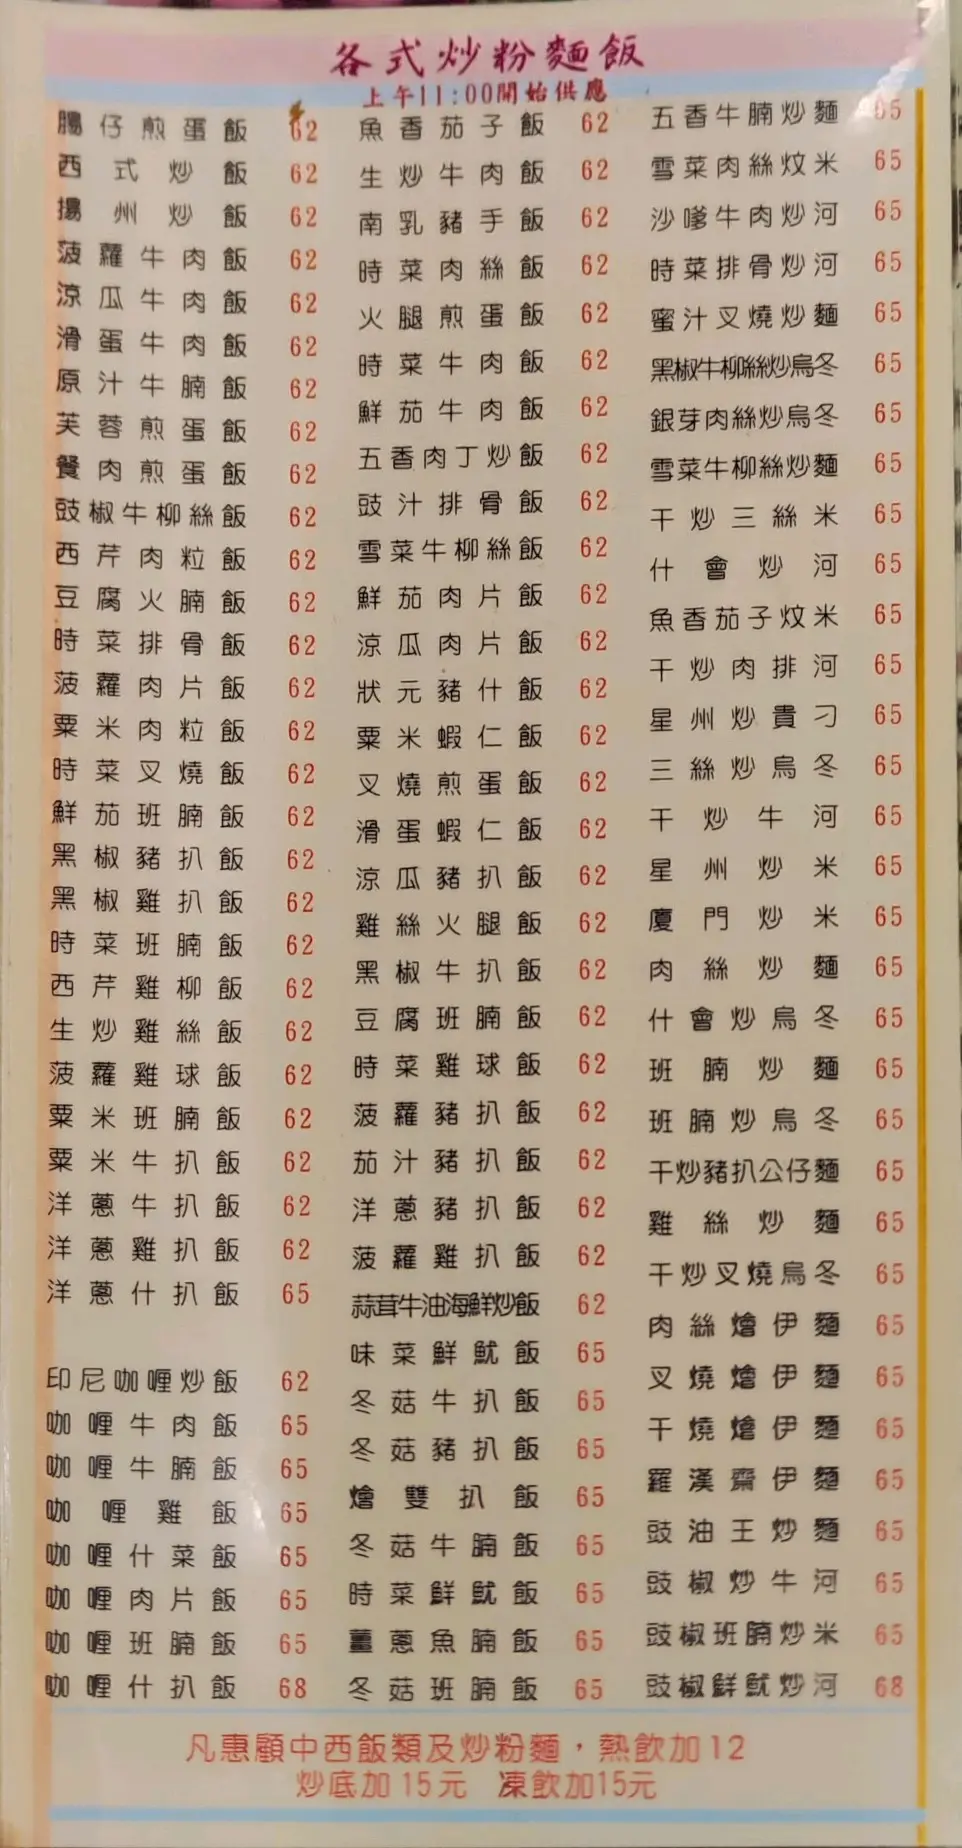 各式炒粉麵飯
上午11:00開始供應
腸仔煎蛋飯 62
西式炒飯 62
揚州炒飯 62
菠蘿牛肉飯 62
涼瓜牛肉飯 62
滑蛋牛肉飯 62
原汁牛腩飯 62
芙蓉煎蛋飯 62
餐肉煎蛋飯 62
豉椒牛柳絲飯 62
西芹肉粒飯 62
豆腐火腩飯 62
時菜排骨飯 62
菠蘿肉片飯 62
粟米肉粒飯 62
時菜叉燒飯 62
鮮茄班腩飯 62
黑椒豬扒飯 62
黑椒雞扒飯 62
時菜班腩飯 62
西芹雞柳飯 62
生炒雞絲飯 62
菠蘿雞球飯 62
粟米班腩飯 62
粟米牛扒飯 62
洋蔥牛扒飯 62
洋蔥雞扒飯 62
洋蔥什扒飯 65
印尼咖喱炒飯 62
咖喱牛肉飯 65
咖喱牛腩飯 65
咖喱雞飯 65
咖喱什菜飯 65
咖喱肉片飯 65
咖喱班腩飯 65
咖喱什扒飯 68
魚香茄子飯 62
生炒牛肉飯 62
南乳豬手飯 62
時菜肉絲飯 62
火腿煎蛋飯 62
時菜牛肉飯 62
鮮茄牛肉飯 62
五香肉丁炒飯 62
豉汁排骨飯 62
雪菜牛柳絲飯 62
鮮茄肉片飯 62
涼瓜肉片飯 62
狀元豬什飯 62
粟米蝦仁飯 62
叉燒煎蛋飯 62
滑蛋蝦仁飯 62
涼瓜豬扒飯 62
雞絲火腿飯 62
黑椒牛扒飯 62
豆腐班腩飯 62
時菜雞球飯 62
菠蘿豬扒飯 62
茄汁豬扒飯 62
洋蔥豬扒飯 62
菠蘿雞扒飯 62
蒜茸牛油海鮮炒飯 62
味菜鮮魷飯 65
冬菇牛扒飯 65
冬菇豬扒飯 65
燴雙扒飯 65
冬菇牛腩飯 65
時菜鮮魷飯 65
薑蔥魚腩飯 65
冬菇班腩飯 65
五香牛腩炒麵 65
雪菜肉絲炆米 65
沙嗲牛肉炒河 65
時菜排骨炒河 65
蜜汁叉燒炒麵 65
黑椒牛柳絲炒烏冬 65
銀芽肉絲炒烏冬 65
雪菜牛柳絲炒麵 65
干炒三絲米 65
什會炒河 65
魚香茄子炆米 65
干炒肉排河 65
星州炒貴刁 65
三絲炒烏冬 65
干炒牛河 65
星州炒米 65
廈門炒米 65
肉絲炒麵 65
什會炒烏冬 65
班腩炒麵 65
班腩炒烏冬 65
干炒豬扒公仔麵 65
雞絲炒麵 65
干炒叉燒烏冬 65
肉絲燴伊麵 65
叉燒燴伊麵 65
干燒燴伊麵 65
羅漢齋伊麵 65
豉油王炒麵 65
豉椒炒牛河 65
豉椒班腩炒米 65
豉椒鮮魷炒河 68
凡惠顧中西飯類及炒粉麵，熱飲加12
炒底加15元 凍飲加15元